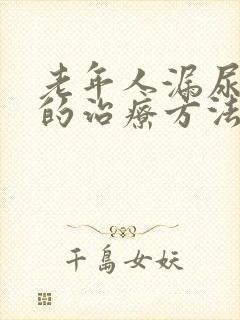 老年人漏尿
的治疗方法
千岛女妖